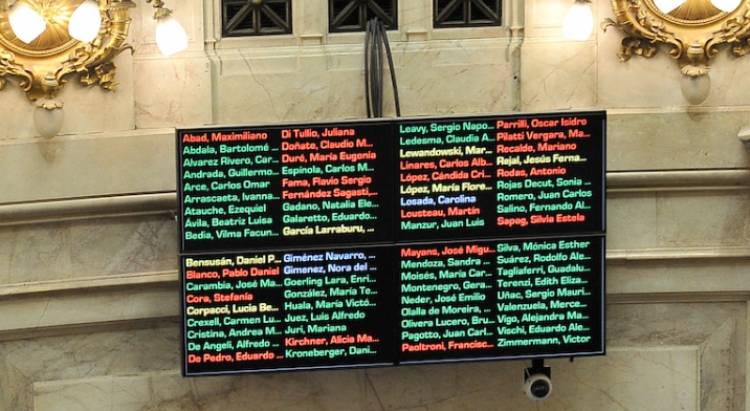 Abad, Maximiliano
Abdala, Bartolomé ...
Alvarez Rivero, Car...
Andrada, Guillermo...
Arce, Carlos Omar
Arrascaeta, Ivanna...
Atauche, Ezequiel
Ávila, Beatriz Luisa
Bedia, Vilma Facun...
Di Tullio, Juliana
Doñate, Claudio M...
Duré, María Eugenia
Espínola, Carlos M...
Fama, Flavio Sergio
Fernández Sagasti,...
Gadano, Natalia Ele...
Galaretto, Eduardo...
García Larraburu, ...
Leavy, Sergio Napo...
Ledesma, Claudia A...
Lewandowski, Mar...
Linares, Carlos Alb...
López, Cándida Cri...
López, María Flore...
Losada, Carolina
Lousteau, Martín
Manzur, Juan Luis
Parrilli, Oscar Isidro
Pilatti Vergara, Ma...
Recalde, Mariano
Rejal, Jesús Ferna...
Rodas, Antonio
Rojas Decut, Sonia ...
Romero, Juan Carlos
Salino, Fernando Al...
Sapag, Silvia Estela
Bensusán, Daniel P...
Blanco, Pablo Daniel
Carambia, José Ma...
Cora, Stefanía
Corpacci, Lucia Be...
Crexell, Carmen Lu...
Cristina, Andrea M...
De Angeli, Alfredo ...
De Pedro, Eduardo ...
Giménez Navarro, ...
Gimenez, Nora del ...
Goerling Lara, Enri...
González, María Te...
Huala, María Victó...
Juez, Luis Alfredo
Juri, Mariana
Kirchner, Alicia Ma...
Kroneberger, Dani...
Mayans, José Migu...
Mendoza, Sandra ...
Moisés, María Car...
Montenegro, Gera...
Neder, José Emilio
Olalla de Moreira, ...
Olivera Lucero, Bru...
Pagotto, Juan Carl...
Paoltroni, Francisc...
Silva, Mónica Esther
Suárez, Rodolfo Ale...
Tagliaferri, Guadalu...
Terenzi, Edith Eliza...
Uñac, Sergio Mauri...
Valenzuela, Merce...
Vigo, Alejandra Ma...
Vischi, Eduardo Ale...
Zimmermann, Víctor